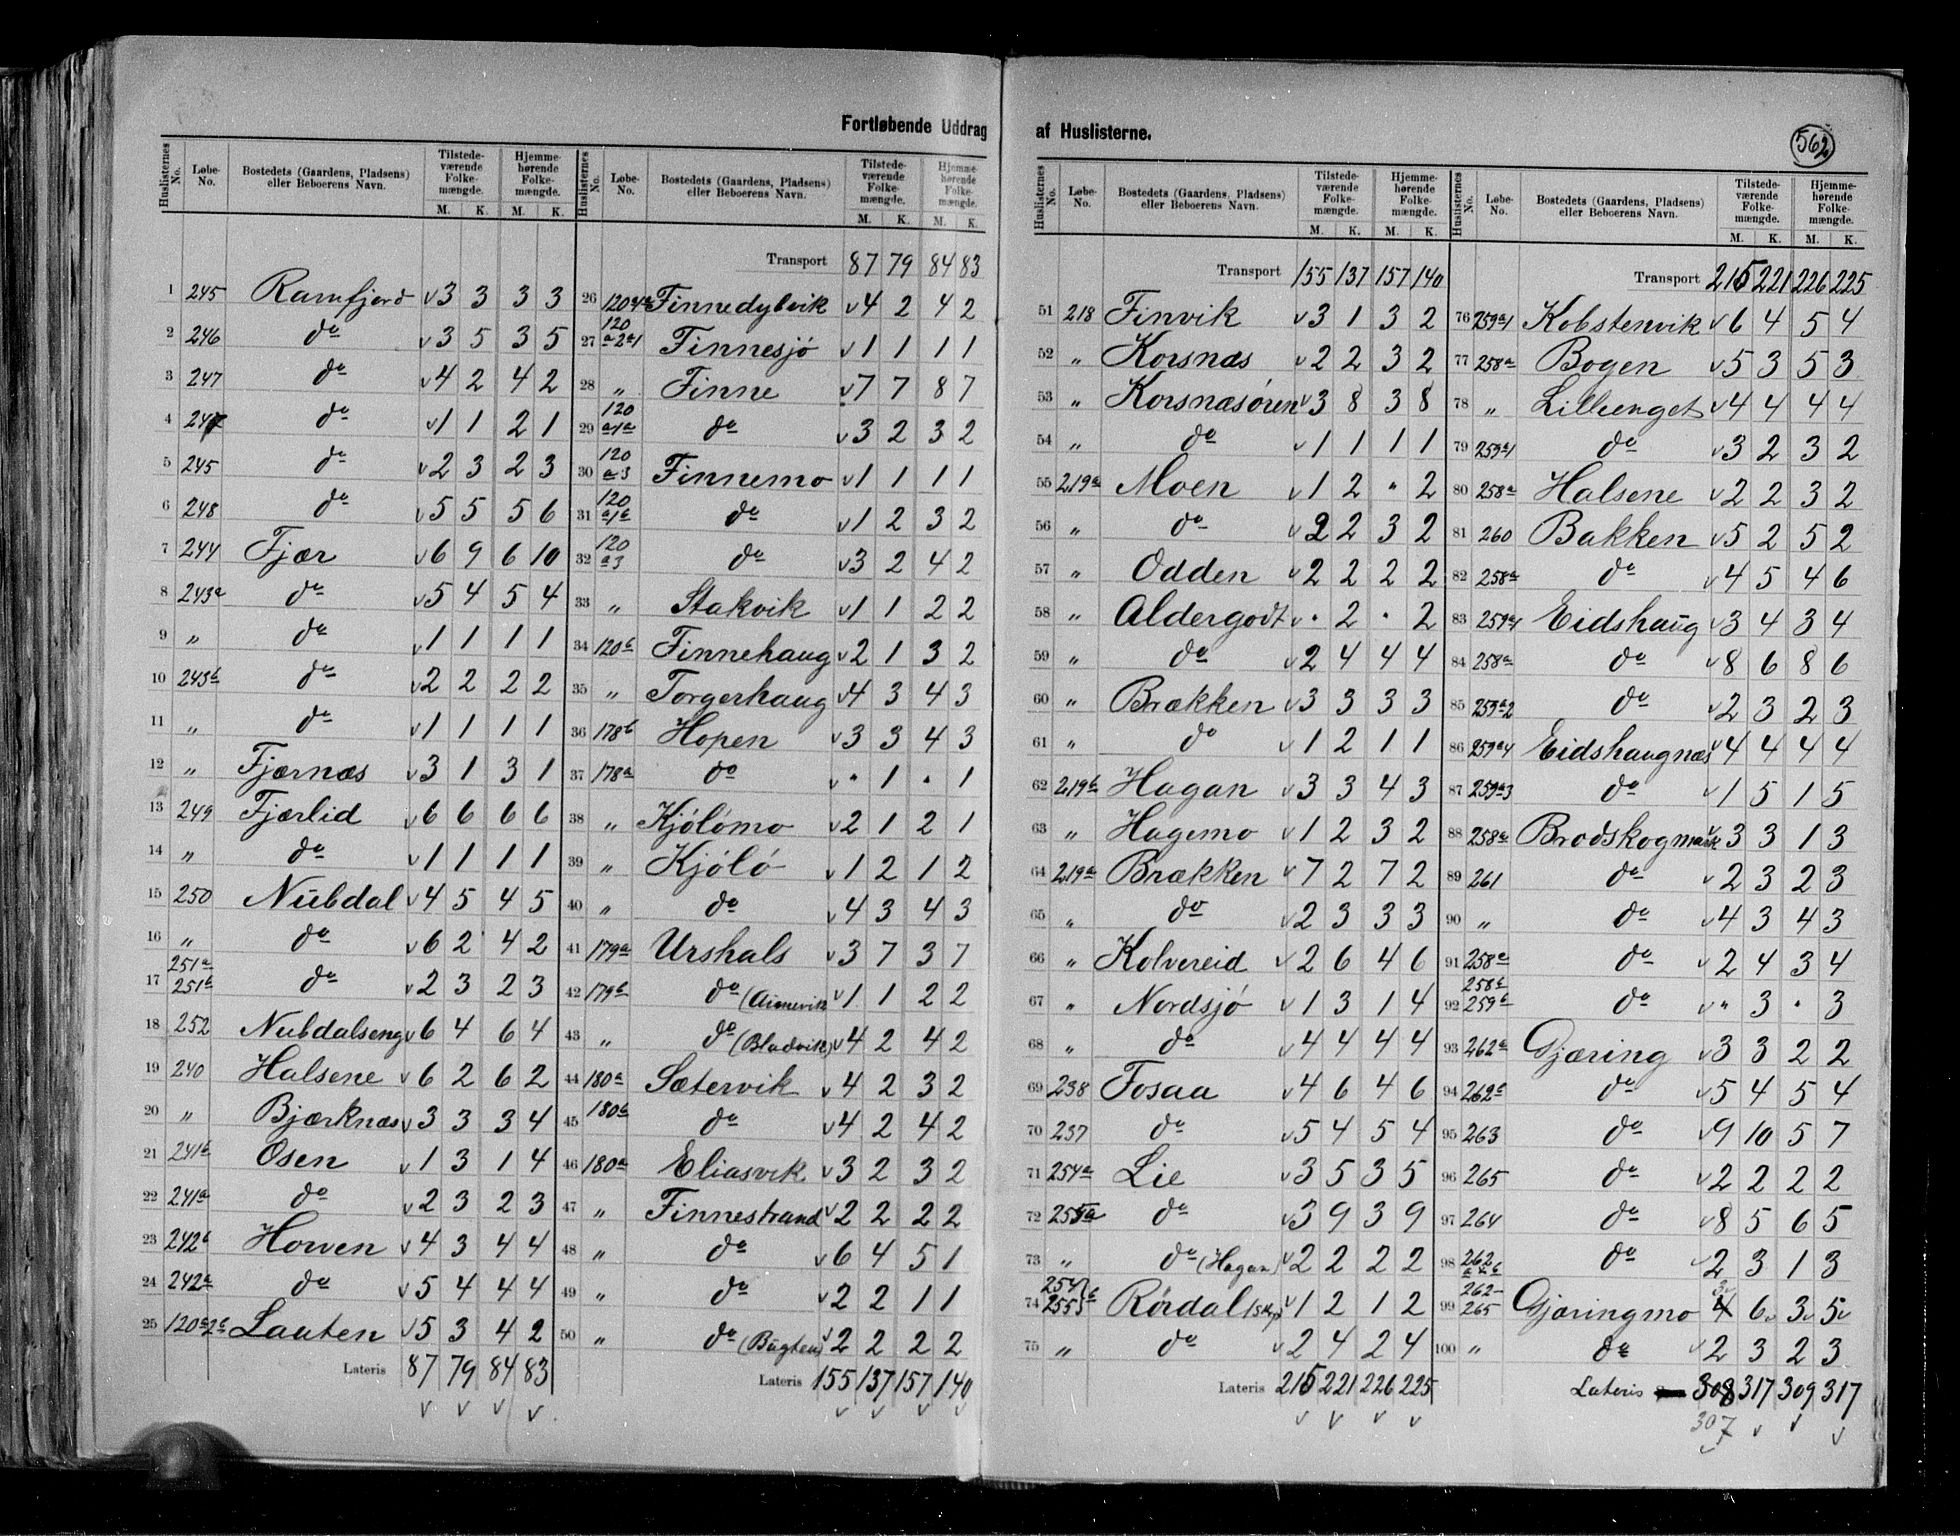 Fortløbende Uddrag af Huslisterne.
562
Huslisternes No. | Løbe-No. | Bostedets (Gaardens, Pladsens) eller Beboerens Navn. | Tilstedeværende Folkemængde. M. K. | Hjemmehørende Folkemængde. M. K.
1 245 Ramfjord v 3 3 3 3
2 246 do v 3 5 3 5
3 247 do v 4 2 4 2
4 247 do v 1 1 2 1
5 245 do v 2 3 2 3
6 248 do v 5 5 5 6
7 244 Fjær v 6 9 6 10
8 243a do v 5 4 5 4
9 " do v 1 1 1 1
10 243b do v 2 2 2 2
11 " do v 1 1 1 1
12 " Fjærnæs v 3 1 3 1
13 249 Fjærlid v 6 6 6 6
14 " do v 1 1 1 1
15 250 Nubdal v 4 5 4 5
16 " do v 6 2 4 2
17 251a 251b do v 2 3 2 3
18 252 Nubdalseng v 6 4 6 4
19 240 Halsene v 6 2 6 2
20 " Bjærknæs v 3 3 3 4
21 241b Osen v 1 3 1 4
22 241a do v 2 3 2 3
23 242b Horven v 4 3 4 4
24 242a do v 5 4 4 4
25 120a2b Lauten v 5 3 4 2
Lateris 87 79 84 83
v v v v
Huslisternes No. | Løbe-No. | Bostedets (Gaardens, Pladsens) eller Beboerens Navn. | Tilstedeværende Folkemængde. M. K. | Hjemmehørende Folkemængde. M. K.
Transport 87 79 84 83
26 120a4a Finnedybvik v 4 2 4 2
27 120 a2a1 Finnesjö v 1 1 1 1
28 " Finne v 7 7 8 7
29 120 a1a do v 3 2 3 2
30 120 a3 Finnemo v 1 1 1 1
31 120 a1b do v 1 2 3 2
32 120 a3 do v 3 2 4 2
33 " Stakvik v 1 1 2 2
34 120b Finnehaug v 2 1 3 2
35 " Torgerhaug v 4 3 4 3
36 178b Hopen v 3 3 4 3
37 178a do v • 1 • 1
38 " Kjölömo v 2 1 2 1
39 " Kjölö v 1 2 1 2
40 " do v 4 3 4 3
41 179a Urshals v 3 7 3 7
42 179b do (Aunevik v 1 1 2 2
43 " do (Bladvik) v 4 2 4 2
44 180a Sætervik v 4 2 3 2
45 180b do v 4 2 4 2
46 180a Eliasvik v 3 2 3 2
47 " Finnestrand v 2 2 2 2
48 " do v 6 4 5 1
49 " do v 2 2 1 1
50 " do (Bugten) v 2 2 2 2
Lateris 155 137 157 140
v v v v
Huslisternes No. | Løbe-No. | Bostedets (Gaardens, Pladsens) eller Beboerens Navn. | Tilstedeværende Folkemængde. M. K. | Hjemmehørende Folkemængde. M. K.
Transport 155 137 157 140
51 218 Finvik v 3 1 3 2
52 " Korsnæs v 2 2 3 2
53 " Korsnæsören v 3 8 3 8
54 " do v 1 1 1 1
55 219a Moen v 1 2 • 2
56 " do v 2 2 3 2
57 " Odden v 2 2 2 2
58 " Aldergodt v • 2 • 2
59 " do v 2 4 4 4
60 " Brækken v 3 3 3 3
61 " do v 1 2 1 1
62 219b Hagan v 3 3 4 3
63 " Hagemo v 1 2 3 2
64 219a Brækken v 7 2 7 2
65 " do v 2 3 3 3
66 " Kolvereid v 2 6 4 6
67 " Nordsjö v 1 3 1 4
68 " do v 4 4 4 4
69 238 Fosaa v 4 6 4 6
70 237 do v 5 4 5 4
71 254a Lie v 3 5 3 5
72 255a do v 3 9 3 9
73 " do (Hagan) v 2 2 2 2
74 254 255 b Rördal v 1 2 1 2
75 " do v 2 4 2 4
Lateris 215 221 226 225
v v v v
Huslisternes No. | Løbe-No. | Bostedets (Gaardens, Pladsens) eller Beboerens Navn. | Tilstedeværende Folkemængde. M. K. | Hjemmehørende Folkemængde. M. K.
Transport 215 221 226 225
76 259a1 Kobstenvik v 6 4 5 4
77 258a Bogen v 5 3 5 3
78 " Lillenget v 4 4 4 4
79 259a1 do v 3 2 3 2
80 258a Halsene v 2 2 3 2
81 260 Bakken v 5 2 5 2
82 258a do v 4 5 4 6
83 259a1 Eidshaug v 3 4 3 4
84 258a do v 8 6 8 6
85 259a2 do v 2 3 2 3
86 259a4 Eidshaugnæs v 4 4 4 4
87 259a3 do v 1 5 1 5
88 258a Brodskogmark v 3 3 1 3
89 261 do v 2 3 2 3
90 " do v 4 3 4 3
91 258a do v 2 4 3 4
92 258b 259b do v " 3 • 3
93 262a Gjæring v 3 3 2 2
94 262b do v 5 4 5 4
95 263 do v 9 10 5 7
96 265 do v 2 2 2 2
97 264 do v 8 5 6 5
98 262 a & b do v 2 3 1 3
99 262-265 Gjæringmo 3v 4 6v 3v 5v
100 " do v 2 3 2 3
Lateris 308 317 309 317
307
v v v v